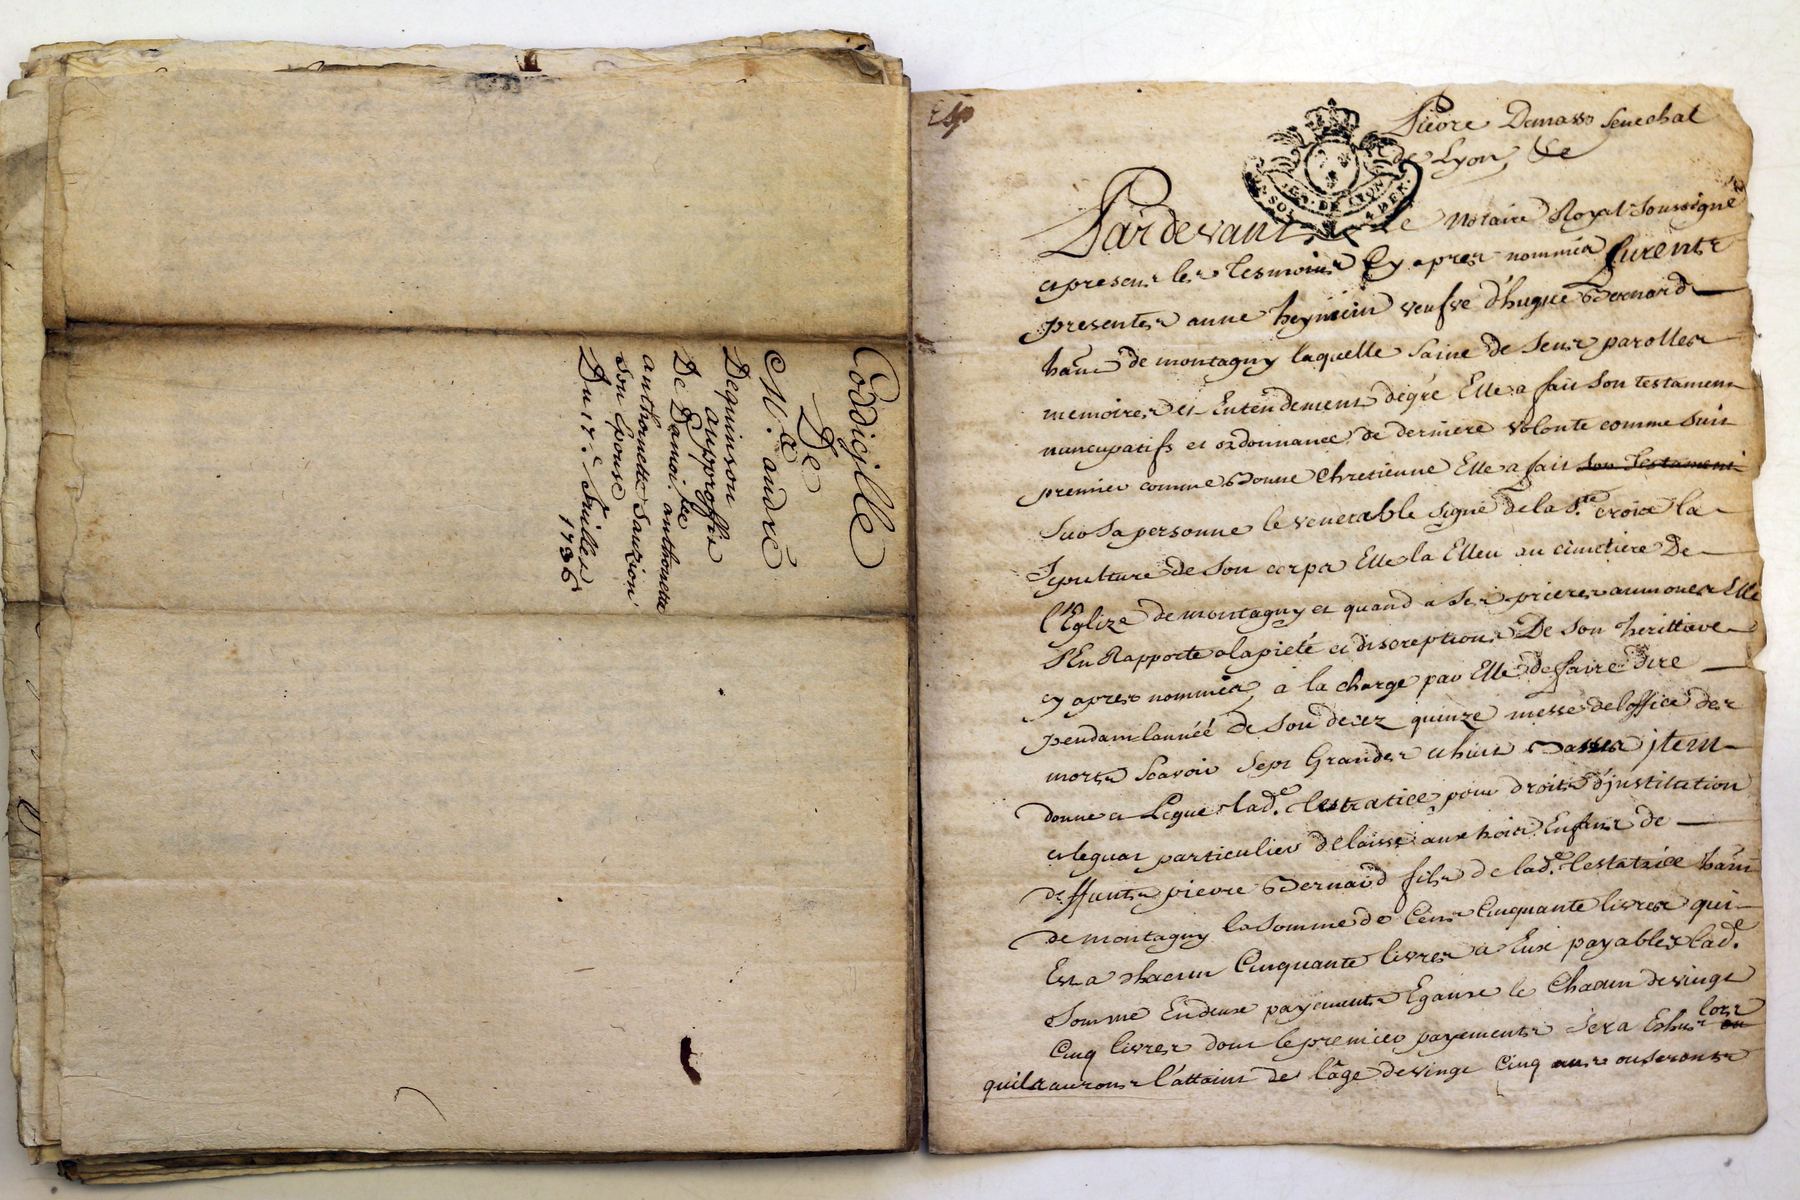 Coddicjlle
De
M.e andré
Dequinson
au pporffit
De Damoi.lle anthoinette
anthoinette Sauzion
son Epouse
Du 17.e Juillet
1736
de Lyon, &c
GEN. DE LYON
Pardevant Le Notaire Royal Soussigné
et presens les tesmoins Cy apres nommés furent
presentes anne heymin veufve d'hugue Bernard
de montagny laquelle saine de sens parolles
memoires et Entendement dégré Elle a fait son testament
nuncupatifs et ordonnance de derniere volonté comme suit
premier comme Bonne Chretienne Elle a fait son Testament
sur sa personne le venerable signe de la S.te croix la
sepulture de son corps Elle la Elleu au cimetiere De
l'Eglize de montagny et quand a ses prieres aumones Elle
s'En Rapporte a la pieté et discreption De son herittiere
cy apres nommée, a la charge par Elle de faire dire
pendant l'année de son decez quinze messe de l'office des
morts scavoir sept Grandes et huit Basses jtem
donne et Legue lad.e testatrice pour droits d'institution
et legat particulier delaissé aux hoirs Enfans de
deffunts pierre Bernard fils de lad.e testatrice
de montagny la somme de Cent Cinquante livres qui
Est a chacun Cinquante livres a Eux payables lad.e
somme En deux payements Egaux le Chacun de vingt
Cinq livres dont le premier payements sera Eshus lors
quils auront l'attaint de l'âge de vingt Cinq ans ou seronts